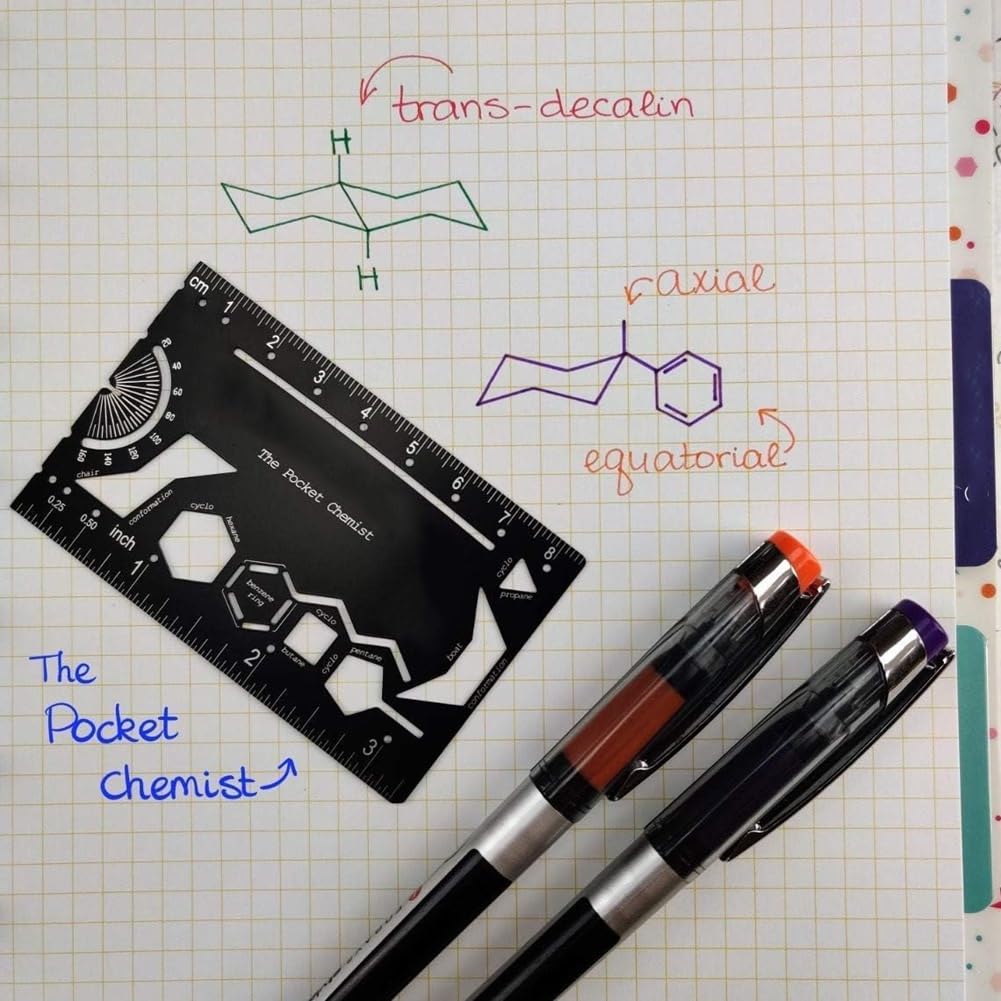 trans-decalin
H
H
axial
equatorial
cm 1 2 3 4 5 6 7 8
20
40
60
80
100
120
140
160
The Pocket Chemist
chair
conformation
cyclo
hexane
benzene
ring
cyclo
butane
cyclo
pentane
boat
conformation
cyclo
propane
0.25 0.50 inch 1 2 3
The
Pocket
Chemist